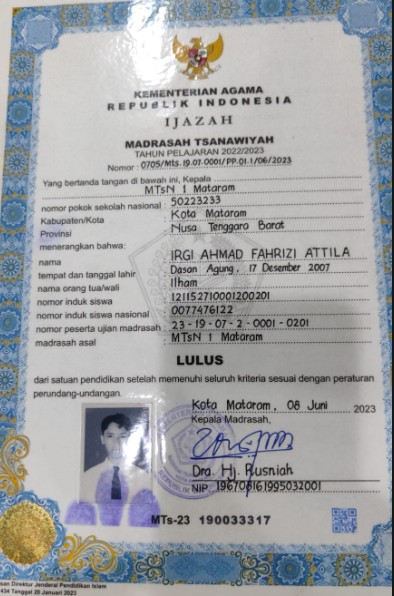 KEMENTERIAN AGAMA
REPUBLIK INDONESIA
IJAZAH
MADRASAH TSANAWIYAH
TAHUN PELAJARAN 2022/2023
Nomor : 0705/Mts.19.07.0001/PP.01.1/06/2023
Yang bertanda tangan di bawah ini, Kepala
MTsN 1 Mataram
nomor pokok sekolah nasional : 50223233
Kabupaten/Kota : Kota Mataram
Provinsi : Nusa Tenggara Barat
menerangkan bahwa:
nama : IRGI AHMAD FAHRIZI ATTILA
tempat dan tanggal lahir : Dasan Agung, 17 Desember 2007
nama orang tua/wali : Ilham
nomor induk siswa : 121152710001200201
nomor induk siswa nasional : 0077476122
nomor peserta ujian madrasah : 23-19-07-2-0001-0201
madrasah asal : MTsN 1 Mataram
LULUS
dari satuan pendidikan setelah memenuhi seluruh kriteria sesuai dengan peraturan
perundang-undangan.
Kota Mataram, 08 Juni 2023
Kepala Madrasah,
Dra. Hj. Rusniah
NIP. 196708161995032001
MTs-23 190033317
Direktur Jenderal Pendidikan Islam
Tanggal 20 Januari 2023